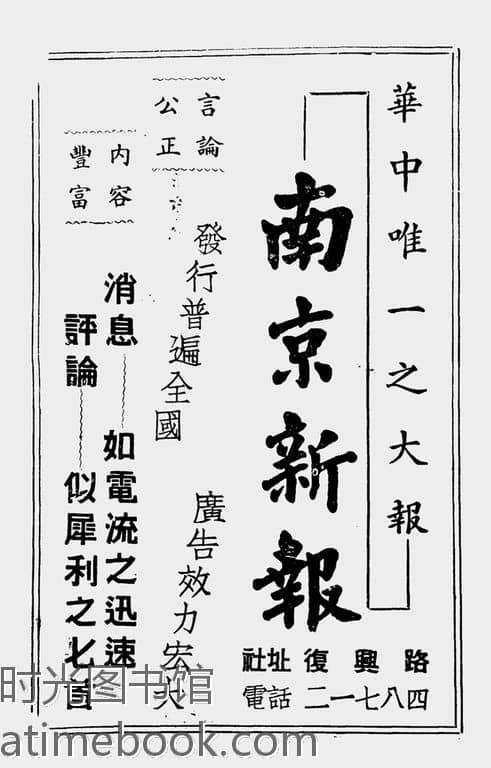 華中唯一之大報
南京新報
社址復興路
電話二一七八四
言論
公正
發行普遍全國
廣告效力宏大
內容
豐富
消息 如電流之迅速
評論 似犀利之匕首
时光图书馆
atimebook.com